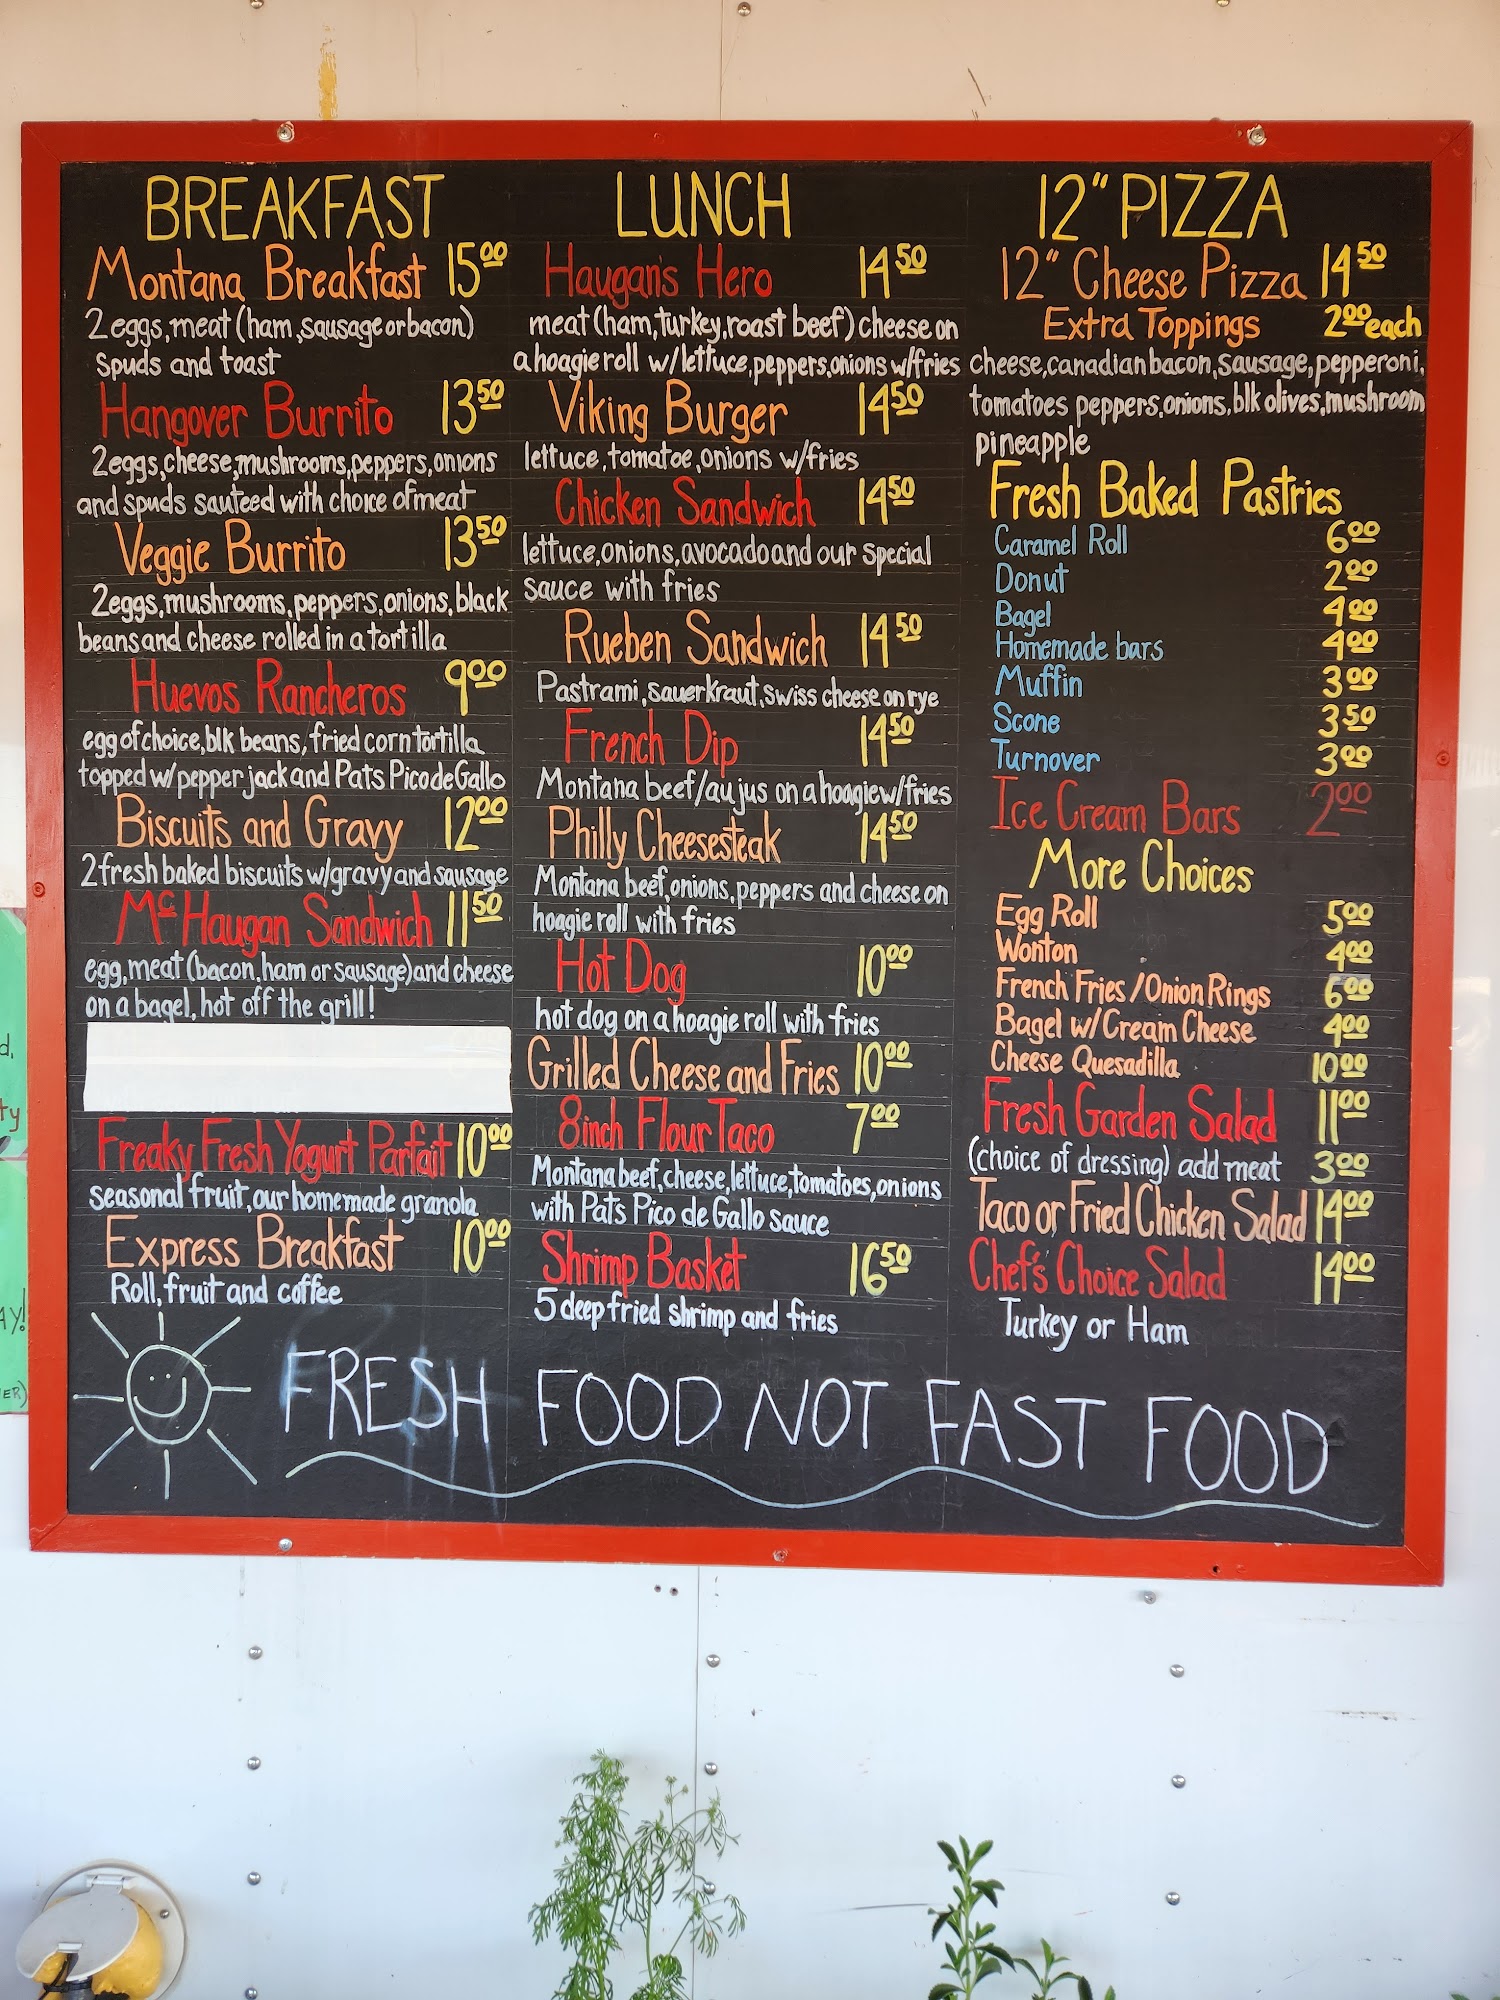 BREAKFAST
Montana Breakfast 15⁰⁰
2 eggs, meat (ham, sausage or bacon)
spuds and toast
Hangover Burrito 13⁵⁰
2 eggs, cheese, mushrooms, peppers, onions
and spuds sauteed with choice of meat
Veggie Burrito 13⁵⁰
2 eggs, mushrooms, peppers, onions, black
beans and cheese rolled in a tortilla
Huevos Rancheros 9⁰⁰
egg of choice, blk beans, fried corn tortilla
topped w/ pepper jack and Pats Pico de Gallo
Biscuits and Gravy 12⁰⁰
2 fresh baked biscuits w/gravy and sausage
Mc Haugan Sandwich 11⁵⁰
egg, meat (bacon, ham or sausage) and cheese
on a bagel, hot off the grill!
Freaky Fresh Yogurt Parfait 10⁰⁰
seasonal fruit, our homemade granola
Express Breakfast 10⁰⁰
Roll, fruit and coffee
LUNCH
Haugan's Hero 14⁵⁰
meat (ham, turkey, roast beef) cheese on
a hoagie roll w/lettuce, peppers, onions w/fries
Viking Burger 14⁵⁰
lettuce, tomatoe, onions w/fries
Chicken Sandwich 14⁵⁰
lettuce, onions, avocado and our special
sauce with fries
Rueben Sandwich 14⁵⁰
Pastrami, sauerkraut, swiss cheese on rye
French Dip 14⁵⁰
Montana beef/au jus on a hoagie w/fries
Philly Cheesesteak 14⁵⁰
Montana beef, onions, peppers and cheese on
hoagie roll with fries
Hot Dog 10⁰⁰
hot dog on a hoagie roll with fries
Grilled Cheese and Fries 10⁰⁰
8inch Flour Taco 7⁰⁰
Montana beef, cheese, lettuce, tomatoes, onions
with Pats Pico de Gallo sauce
Shrimp Basket 16⁵⁰
5 deep fried shrimp and fries
12" PIZZA
12" Cheese Pizza 14⁵⁰
Extra Toppings 2⁰⁰ each
cheese, canadian bacon, sausage, pepperoni,
tomatoes peppers, onions, blk olives, mushroom
pineapple
Fresh Baked Pastries
Caramel Roll 6⁰⁰
Donut 2⁰⁰
Bagel 4⁰⁰
Homemade bars 4⁰⁰
Muffin 3⁰⁰
Scone 3⁵⁰
Turnover 3⁰⁰
Ice Cream Bars 2⁰⁰
More Choices
Egg Roll 5⁰⁰
Wonton 4⁰⁰
French Fries / Onion Rings 6⁰⁰
Bagel w/Cream Cheese 4⁰⁰
Cheese Quesadilla 10⁰⁰
Fresh Garden Salad 11⁰⁰
(choice of dressing) add meat 3⁰⁰
Taco or Fried Chicken Salad 14⁰⁰
Chef's Choice Salad 14⁰⁰
Turkey or Ham
FRESH FOOD NOT FAST FOOD